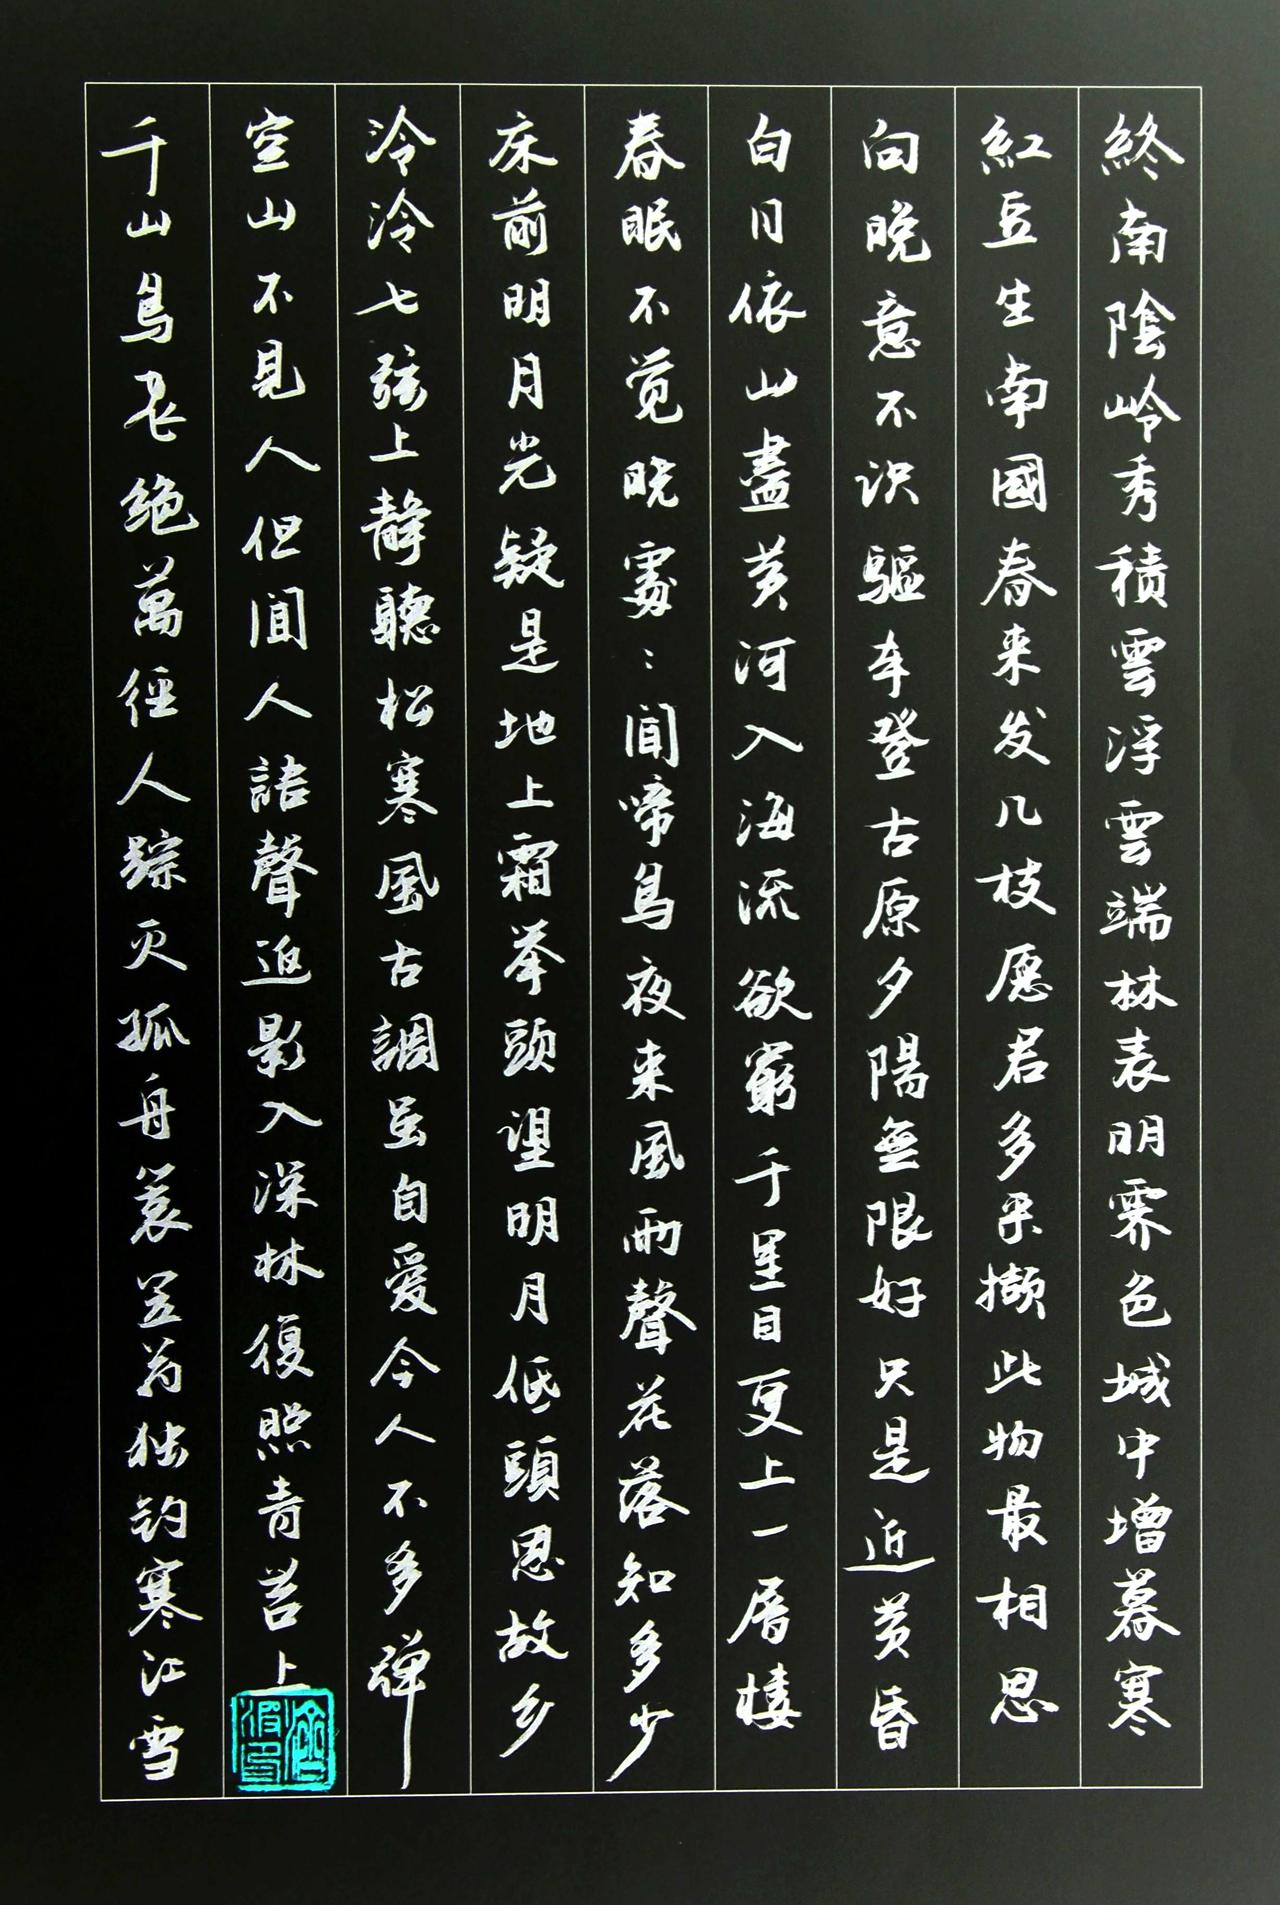 終南陰岭秀積雲浮雲端林表明霁色城中增暮寒
紅豆生南國春来发几枝愿君多采撷此物最相思
向晚意不识驱车登古原夕陽無限好只是近黄昏
白日依山盡黄河入海流欲窮千里目更上一層楼
春眠不觉晓處：闻啼鸟夜来風雨聲花落知多少
床前明月光疑是地上霜举頭望明月低頭思故乡
泠泠七弦上静聽松寒風古調虽自爱今人不多弹
空山不見人但闻人語聲返影入深林復照青苔上
千山鸟飞绝萬径人踪灭孤舟蓑笠翁独钓寒江雪